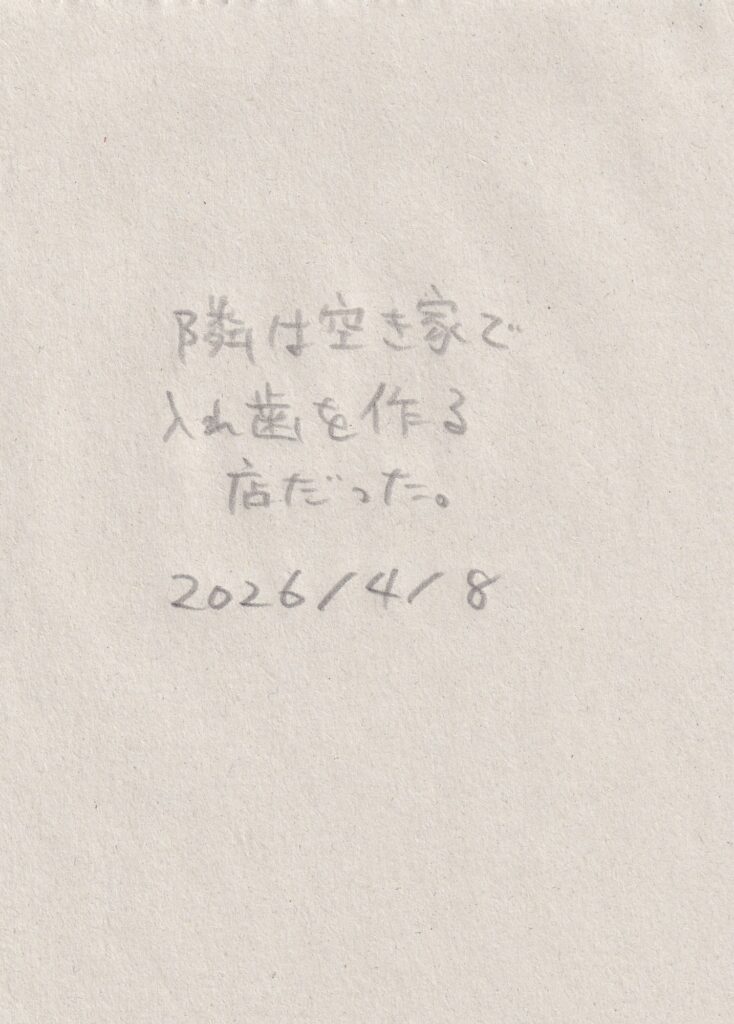 隣は空き家で
入れ歯を作る
店だった。
2026/4/8